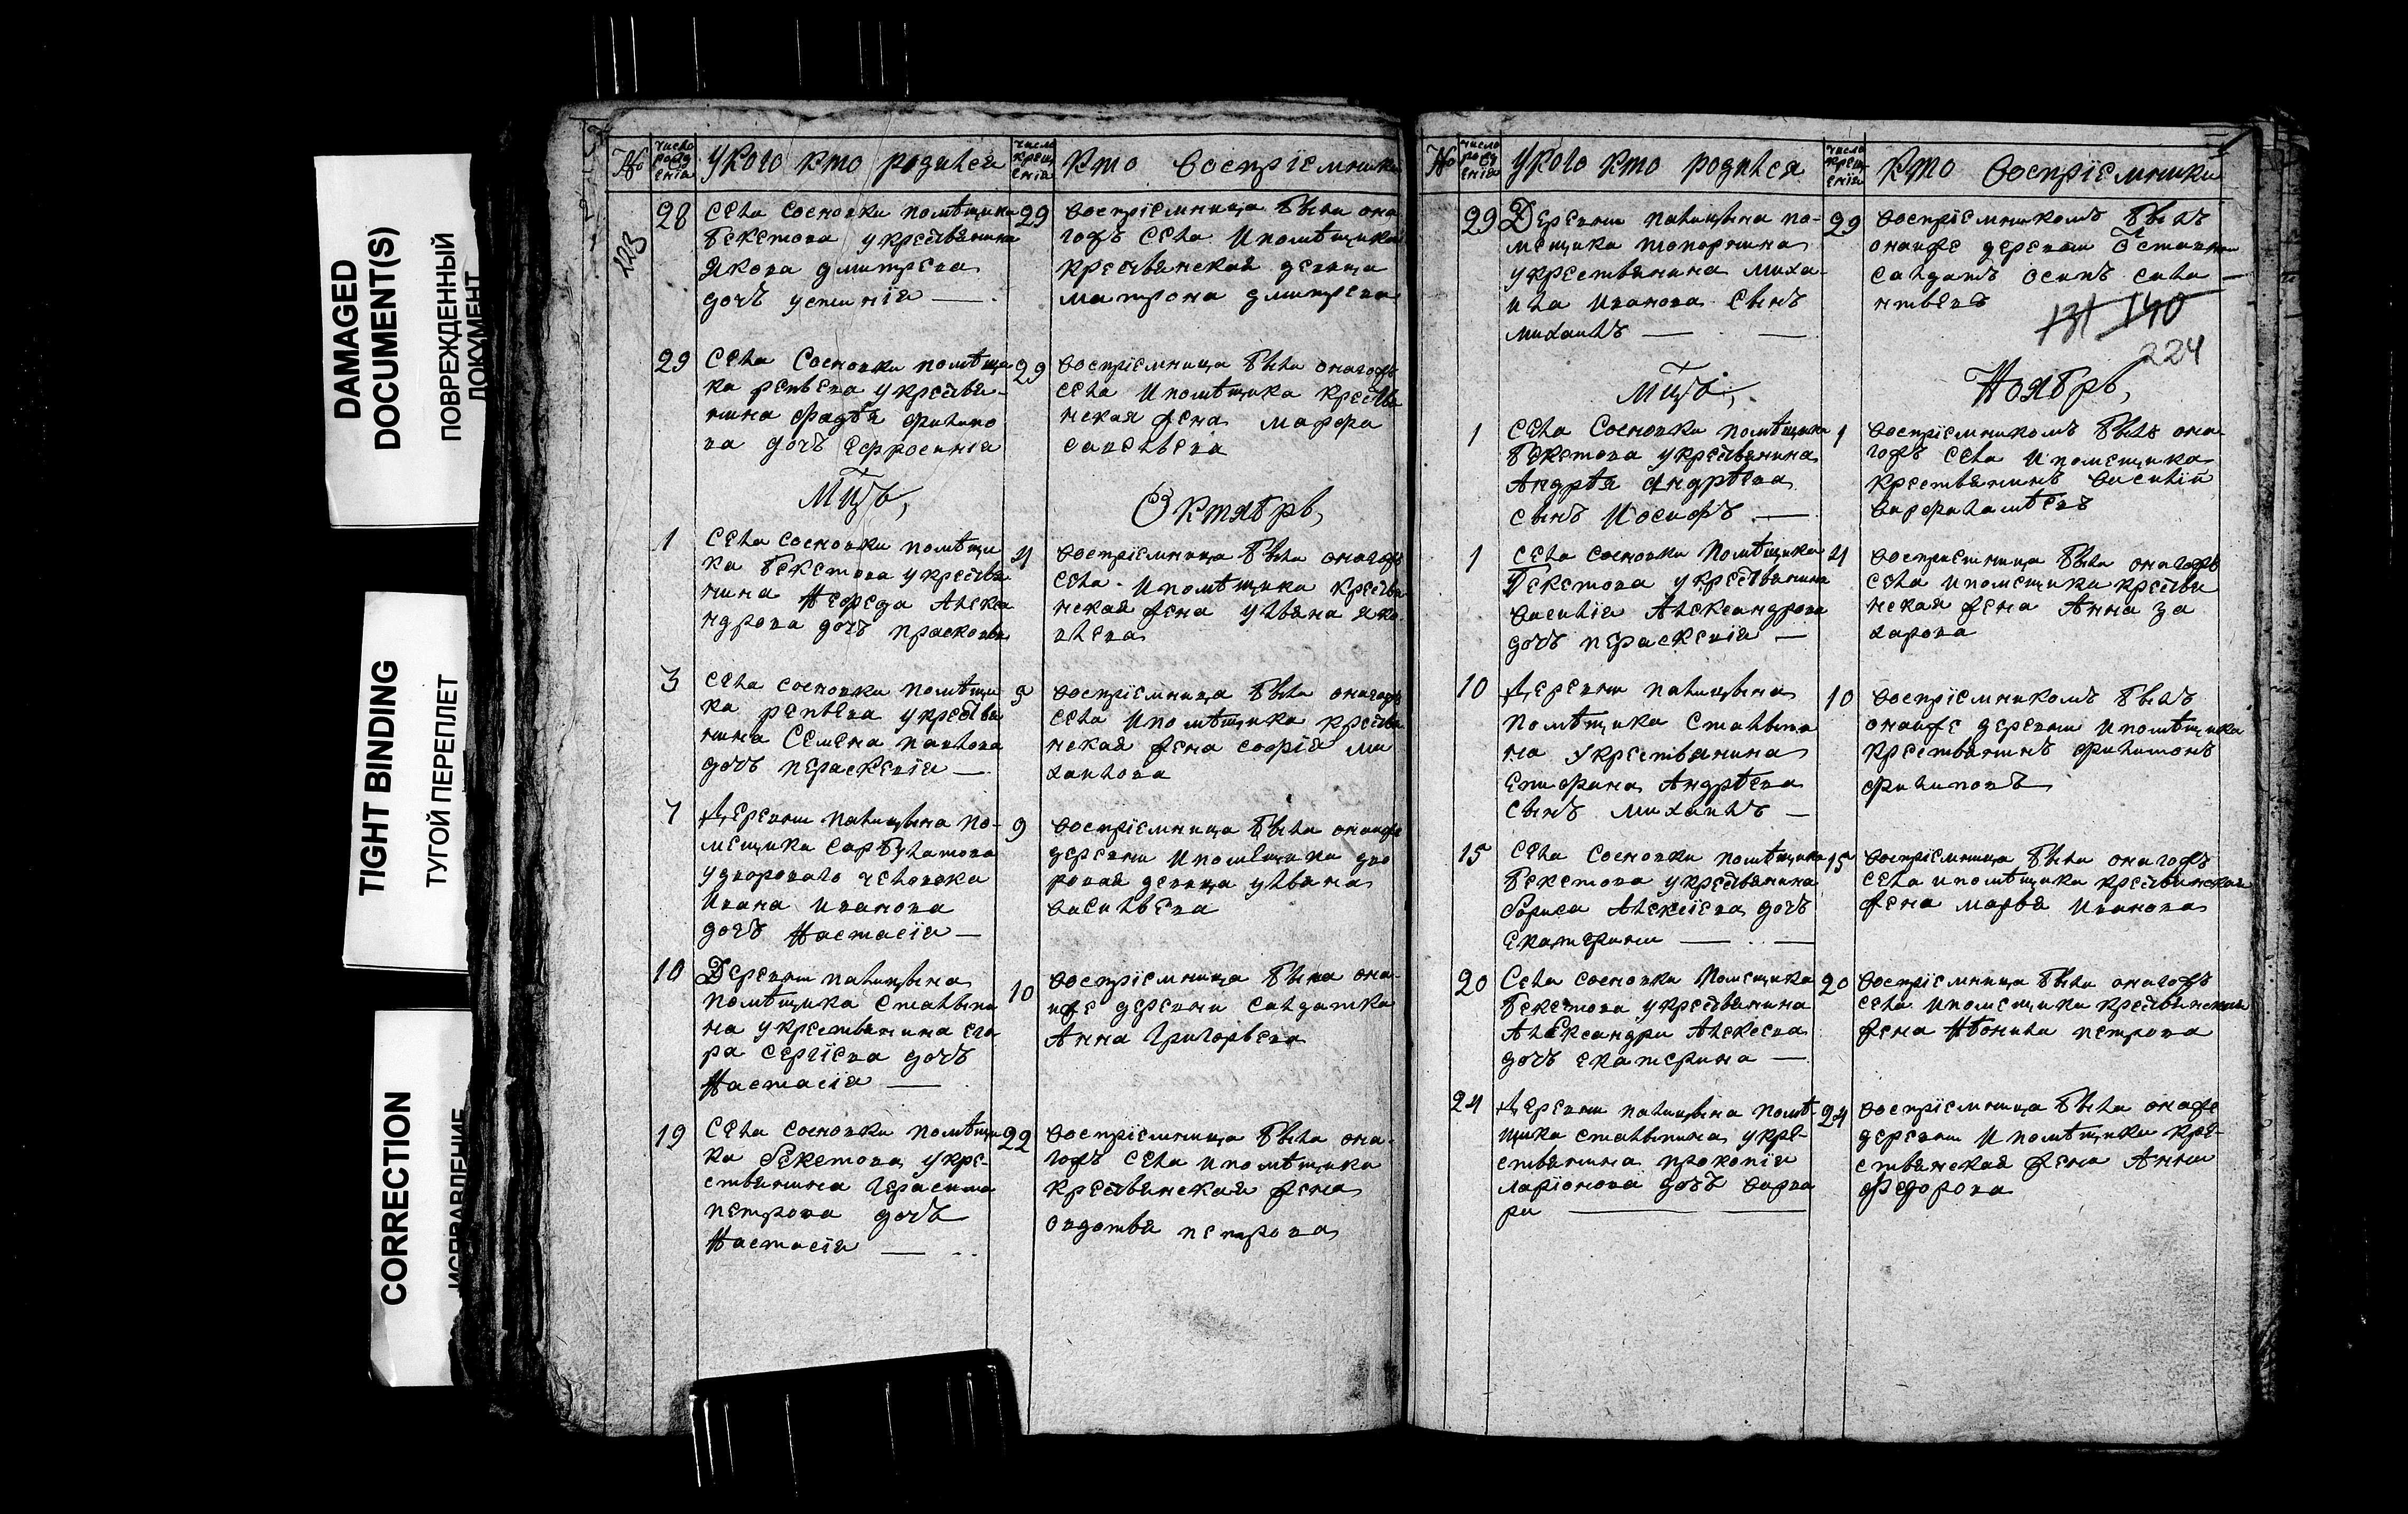 DAMAGED
DOCUMENT(S)
ПОВРЕЖДЕННЫЙ
ДОКУМЕНТ
TIGHT BINDING
ТУГОЙ ПЕРЕПЛЕТ
CORRECTION
ИСПРАВЛЕНИЕ
№ число рождения У кого кто родился число крещения кто восприемники
223
28 села сосновки помѣщика 29
бекетова у крестьянина
якова дмитрева
дочь устинїа
восприемница была она
гожъ села и помѣщика
крестьянская девица
матрона дмитрева
29 села Сосновки помѣщи 29
ка репьева у крестья-
нина фадѣя филипо
ва дочь ефросинїа
восприемница была онагожъ
села и помѣщика крестья
нская жена марфа
савельева
Мцъ, Октябрь,
1 села сосновки помѣщи 4
ка бекетова у крестья
нина Нефеда Алекса
ндрова дочь прасковья
восприемница была онагожъ
села и помѣщика крестья
нская жена ульяна яко
влева
3 села сосновки помѣщи 5
ка репьева у крестья
нина Семена павлова
дочь параскевїа
восприемница была онагожъ
села и помѣщика крестья
нская жена софїа ми
хаилова
7 Деревни палицына по- 9
мещика сарбулатова
у двороваго человека
Ивана Иванова
дочь Настасїа
восприемница была онаиже
деревни и помещика дво
ровая девица ульяна
васильева
10 Деревни палицына 10
помѣщика сталыпи
на у крестьянина его
ра сергїева дочь
Настасїа
восприемница была она-
иже деревни салдатка
Анна Григорьева
19 села сосновки помѣщи 22
ка бекетова у кре-
стьянина Герасима
петрова дочь
Настасїа
восприемница была она-
гожъ села и помѣщика
крестьянская жена
овдотья петрова
№ число рождения У кого кто родился число крещения кто восприемники
29 Деревни палицына по- 29
мещика топорнина
у крестьянина миха-
ила Иванова сынъ
михаилъ
восприемникомъ былъ
онаиже деревни
салдатъ осипъ сила
нтьевъ
131 140
224
Мцъ, Ноябрь,
1 села Сосновки помѣщика 1
бекетова у крестьянина
Андрѣя Андрѣева
сынъ Иосифъ
восприемникомъ былъ она-
гожъ села и помещика
крестьянинъ василий
варфоламѣевъ
1 села сосновки помѣщика 4
бекетова у крестьянина
василїя Александрова
дочь параскевїа
восприемница была онагожъ
села и помещика крестья
нская жена Анна за
харова
10 Деревни палицына 10
помѣщика сталыпи
на у крестьянина
епифана Андрѣева
сынъ михаилъ
восприемникомъ былъ
онаиже деревни и помѣщика
крестьянинъ филимонъ
филиповъ
15 села сосновки помѣщика 15
бекетова у крестьянина
бориса Алексїева дочь
екатерина
восприемница была онагожъ
села и помѣщика крестьянская
жена марья Иванова
20 села сосновки помещика 20
бекетова у крестьянина
Александра Алексева
дочь екатерина
восприемница была онагожъ
села и помещика крестьянская
жена петрова
24 Деревни палицына помѣ- 24
щика сталыпина у кре-
стьянина прокопїя
ларїонова дочь варва
ра
восприемница была онаже
деревни и помѣщика кре-
стьянская жена Анна
федорова